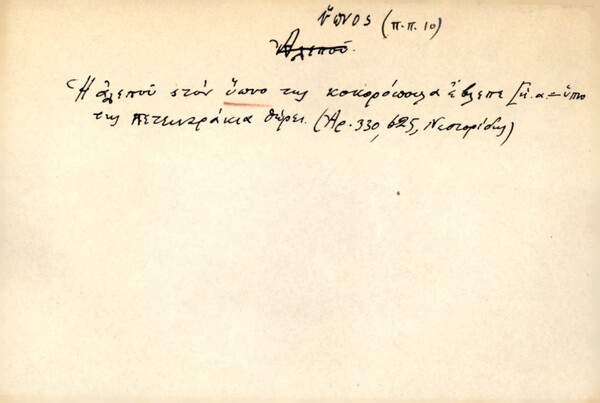 ὕπνος (π.π. 10)
Ἀλεποῦ.
Ἡ ἀλεποῦ στὸν ὕπνο της κοκορόπουλα ἔβλεπε [ἡ ἀ— ὕπνο
της πετειναράκια θώρει. (Ἀρ. 330, 625, Νεστορίδης)